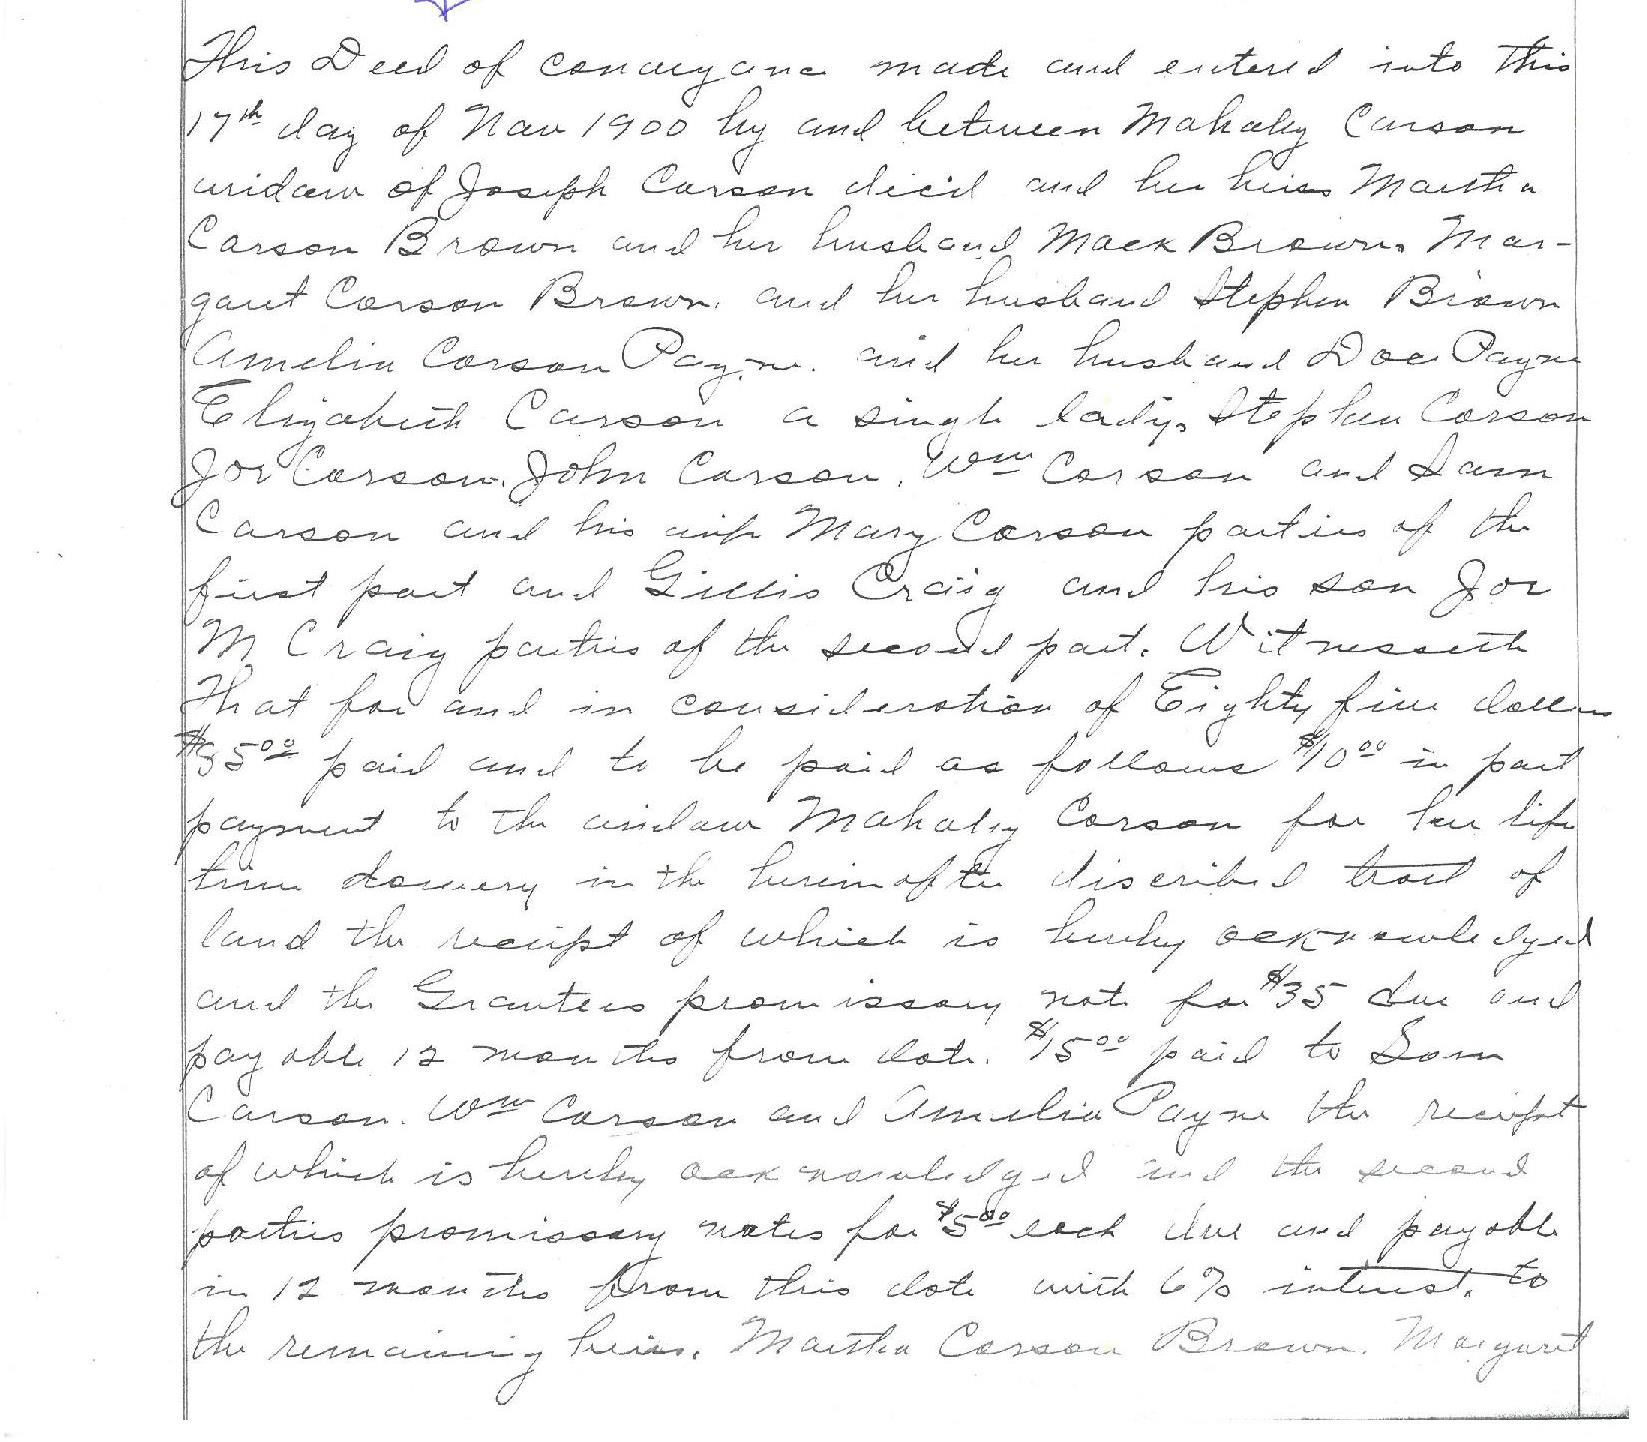 This Deed of conveyance made and entered into this
17th day of Nov 1900 by and between Mahaley Carson
widow of Joseph Carson dec'd and her heirs Martha
Carson Brown and her husband Mack Brown. Mar-
garet Carson Brown. and her husband Stephen Brown
Amelia Carson Payne. and her husband Doc Payne
Elizabeth Carson a single lady. Stephen Carson
Joe Carson. John Carson. Wm Carson and Sam
Carson and his wife Mary Carson parties of the
first part and Gillis Craig and his son Joe
M Craig parties of the second part. Witnesseth
That for and in consideration of Eighty five dollars
$8500 paid and to be paid as follows $1000 in part
payment to the widow Mahaley Carson for her life
time dowery in the hereinafter discribed tract of
land the receipt of which is hereby acknowledged
and the Grantees promissory note for $35 due and
payable 12 months from date. $1500 paid to Sam
Carson. Wm Carson and Amelia Payne the receipt
of which is hereby acknowledged and the second
parties promissory notes for $500 each due and payable
in 12 months from this date with 6% interest. to
the remaining heirs. Martha Carson Brown. Margaret